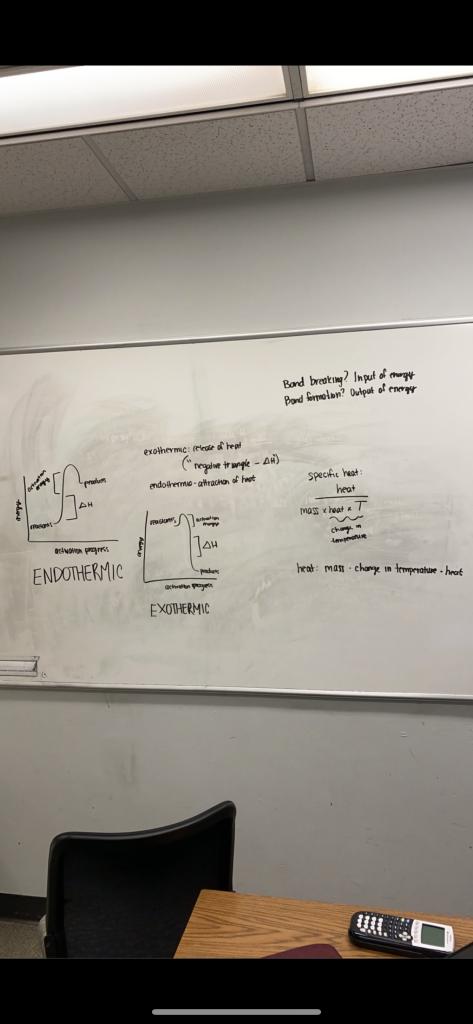 Bond breaking? Input of energy
Bond formation? Output of energy
exothermic: release of heat
("negative triangle - ΔH)
endothermic - attraction of heat
specific heat:
heat
mass x heat x T
change in
temperature
heat: mass · change in temperature · heat
activation
energy
products
ΔH
reactants
energy
activation progress
ENDOTHERMIC
reactants
activation
energy
ΔH
energy
products
activation progress
EXOTHERMIC